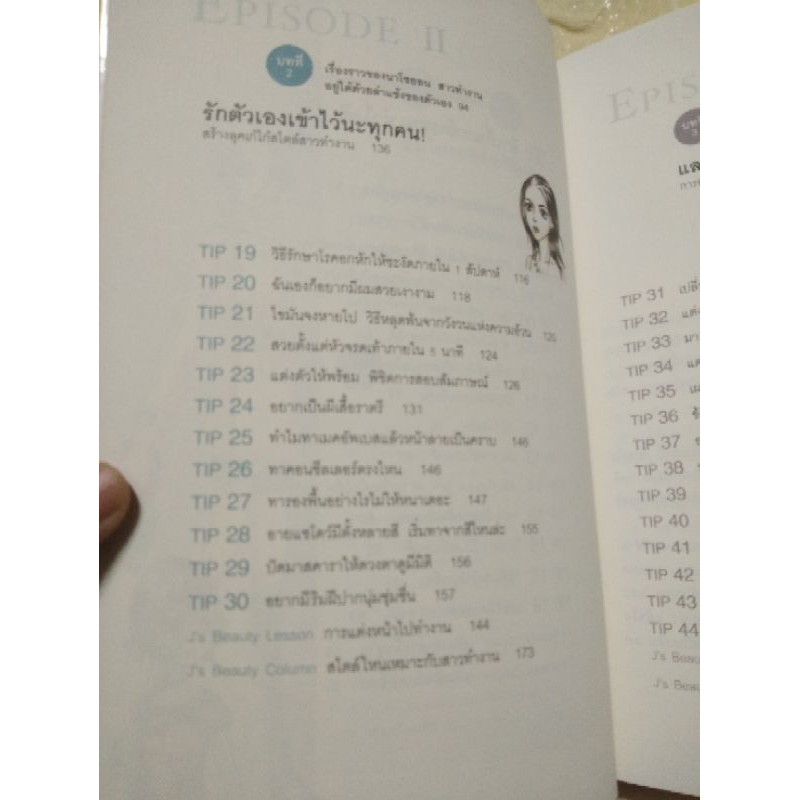 EPISODE II
บทที่ 2
เรื่องราวของนาโชยอน สาวทำงาน
อยู่ได้ด้วยลำแข้งของตัวเอง 94
รักตัวเองเข้าไว้นะทุกคน!
สร้างลุคเก๋ไก๋สไตล์สาวทำงาน 136
TIP 19 วิธีรักษาโรคอกหักให้ชะงัดภายใน 1 สัปดาห์ 116
TIP 20 ฉันเองก็อยากมีผมสวยเงางาม 118
TIP 21 ไขมันจงหายไป วิธีหลุดพ้นจากวังวนแห่งความอ้วน 120
TIP 22 สวยตั้งแต่หัวจรดเท้าภายใน 5 นาที 124
TIP 23 แต่งตัวให้พร้อม พิชิตการสอบสัมภาษณ์ 126
TIP 24 อยากเป็นผีเสื้อราตรี 131
TIP 25 ทำไมทาเมคอัพเบสแล้วหน้าลายเป็นคราบ 146
TIP 26 ทาคอนซีลเลอร์ตรงไหน 146
TIP 27 ทารองพื้นอย่างไรไม่ให้หนาเตอะ 147
TIP 28 อายแชโดว์มีตั้งหลายสี เริ่มทาจากสีไหนล่ะ 155
TIP 29 ปัดมาสคาราให้ดวงตาดูมีมิติ 156
TIP 30 อยากมีริมฝีปากนุ่มชุ่มชื่น 157
J's Beauty Lesson การแต่งหน้าไปทำงาน 144
J's Beauty Column สไตล์ไหนเหมาะกับสาวทำงาน 173
EPIS
บทที่ 3
แล
การ
TIP 31 เปลี่
TIP 32 แต่
TIP 33 มา
TIP 34 แต
TIP 35
TIP 36
TIP 37
TIP 38
TIP 39
TIP 40
TIP 41
TIP 42
TIP 43
TIP 44
J's Beau
J's Beau